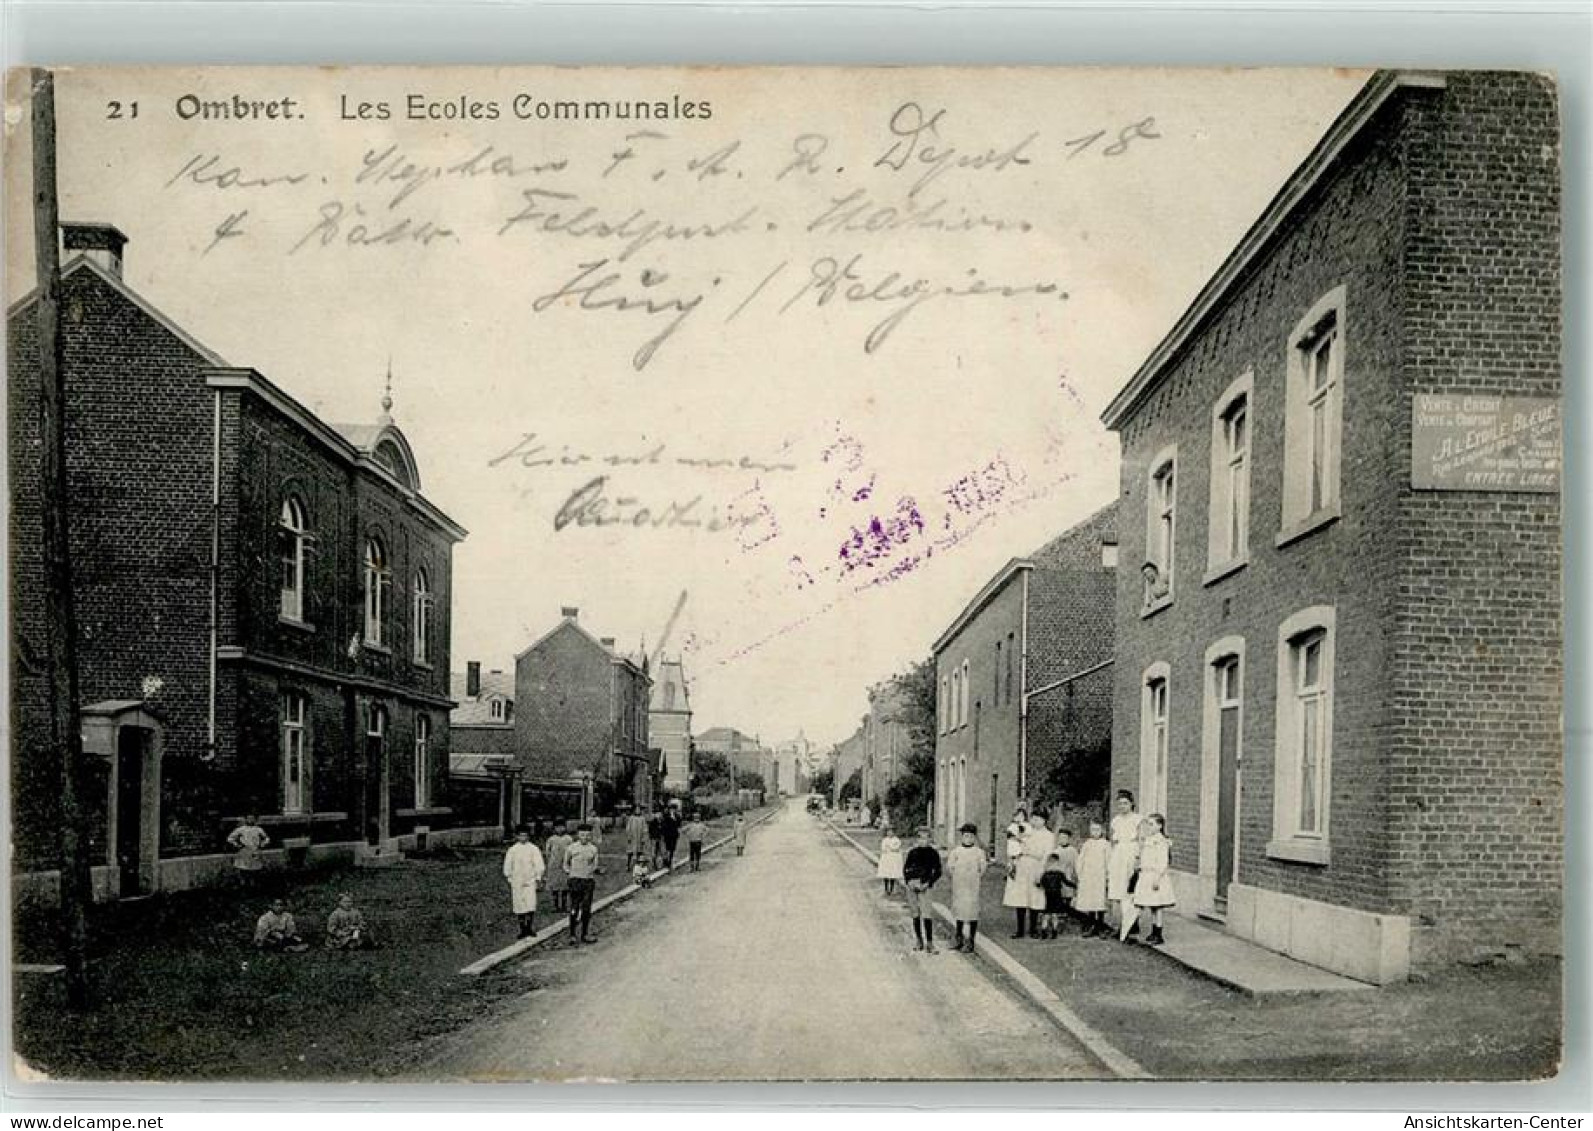 21 Ombret. Les Ecoles Communales
Kan. Stephan F. A. R. Depot 18
4 Battr. Feldpost-Station
Huy / Belgien.
Hier ist mein
Quartier
VENTE à CRÉDIT
VENTE au COMPTANT
A L'ETOILE BLEUE
ENTRÉE LIBRE
Ansichtskarten-Center